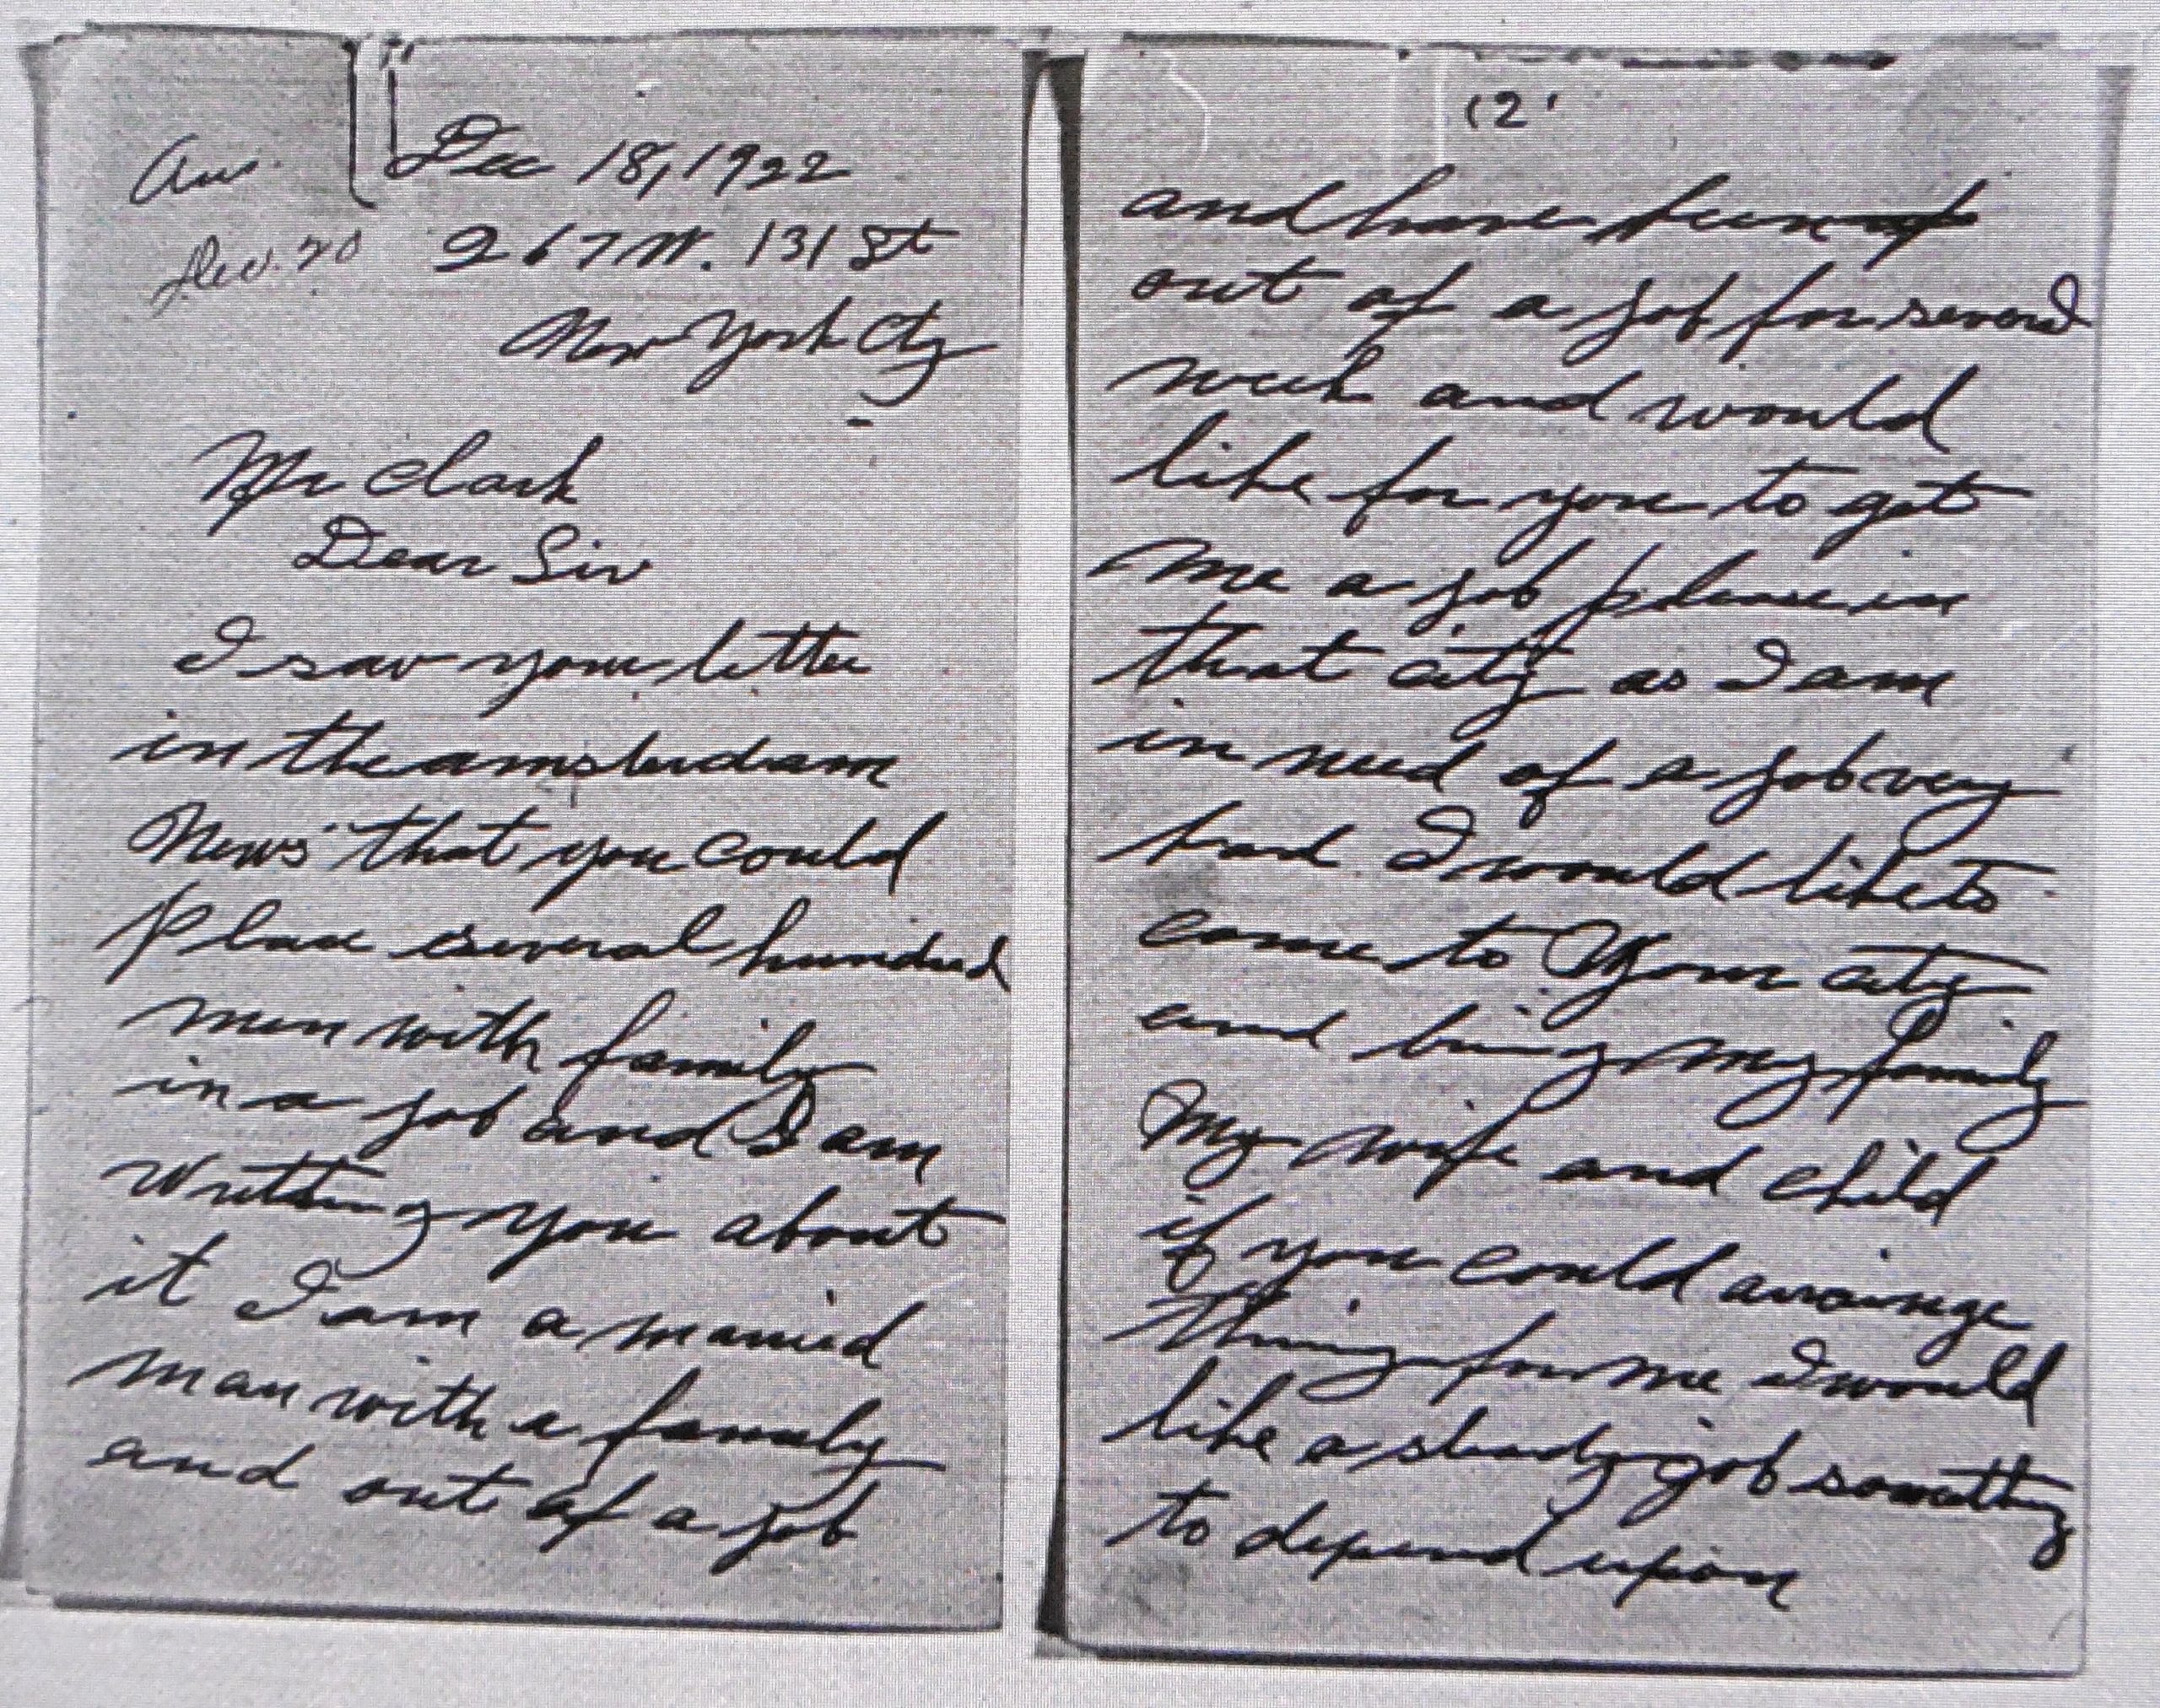 Ans.
Dec. 20
Dec 18, 1922
267 W. 131 St
New York Cty
Mr Clark
Dear Sir
I saw your letter
in the amsterdam
News that you could
place several hundred
men with family
in a job and I am
writting you about
it I am a married
man with a family
and out of a job
(2)
and have been
out of a job for several
week and would
like for you to get
me a job please in
that city as I am
in need of a job very
bad I would like to
come to Your city
and bring my family
My wife and child
if you could arrainge
things for me I would
like a steady job somthing
to depend upon